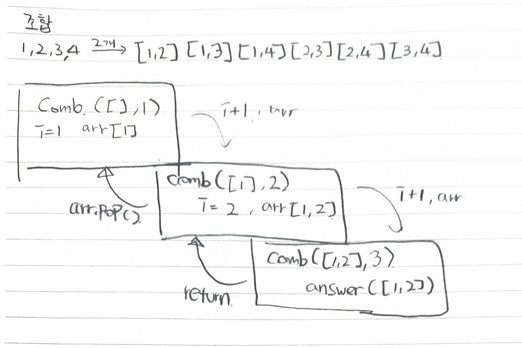 조합
1,2,3,4 2개→ [1,2] [1,3] [1,4] [2,3] [2,4] [3,4]
Comb.([],1)
i=1 arr[1]
i+1, arr
comb([1],2)
i=2, arr[1,2]
arr.pop()
i+1, arr
comb([1,2],3)
answer([1,2])
return